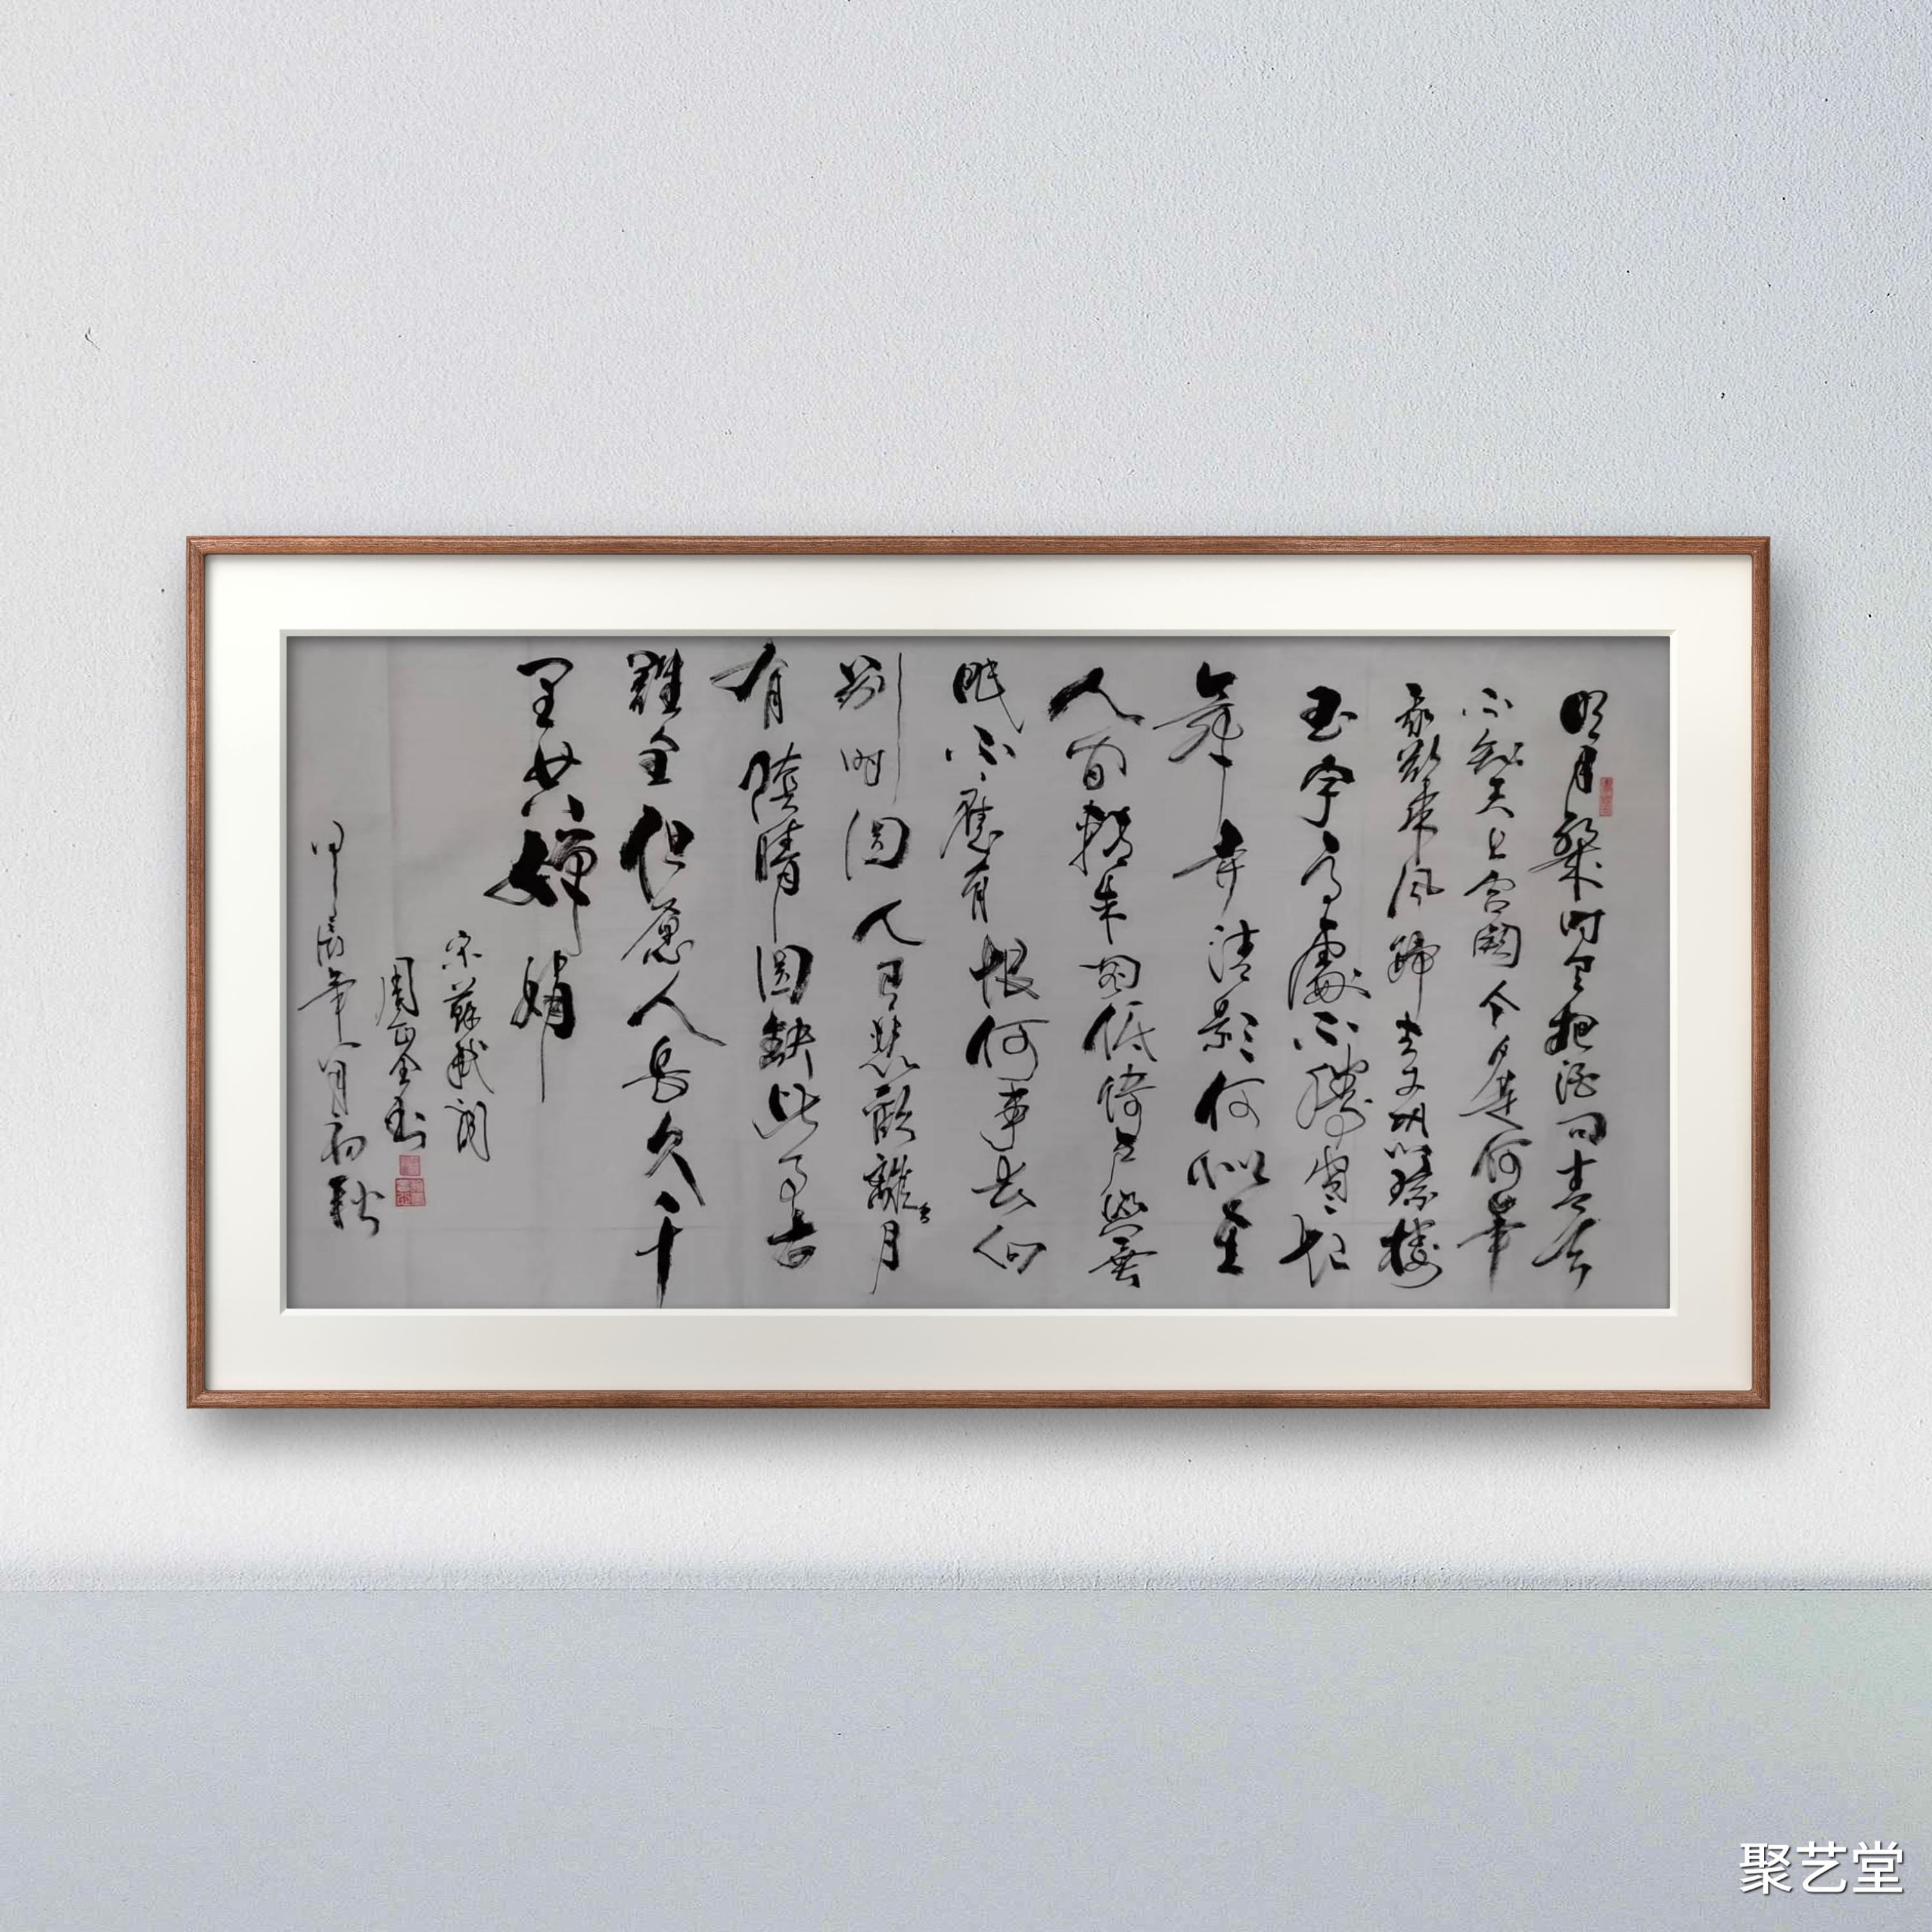 明月幾时有把酒问青天
不知天上宫闕今夕是何年
我欲乘风歸去又恐瓊樓
玉宇高處不勝寒起
舞弄清影何似在
人间轉朱阁低绮户照無
眠不應有恨何事长向
别时圆人有悲歡離合月
有陰晴圆缺此事古
難全但愿人长久千
里共嬋娟
宋蘇軾詞
周正全书
甲辰年八月初秋
聚艺堂